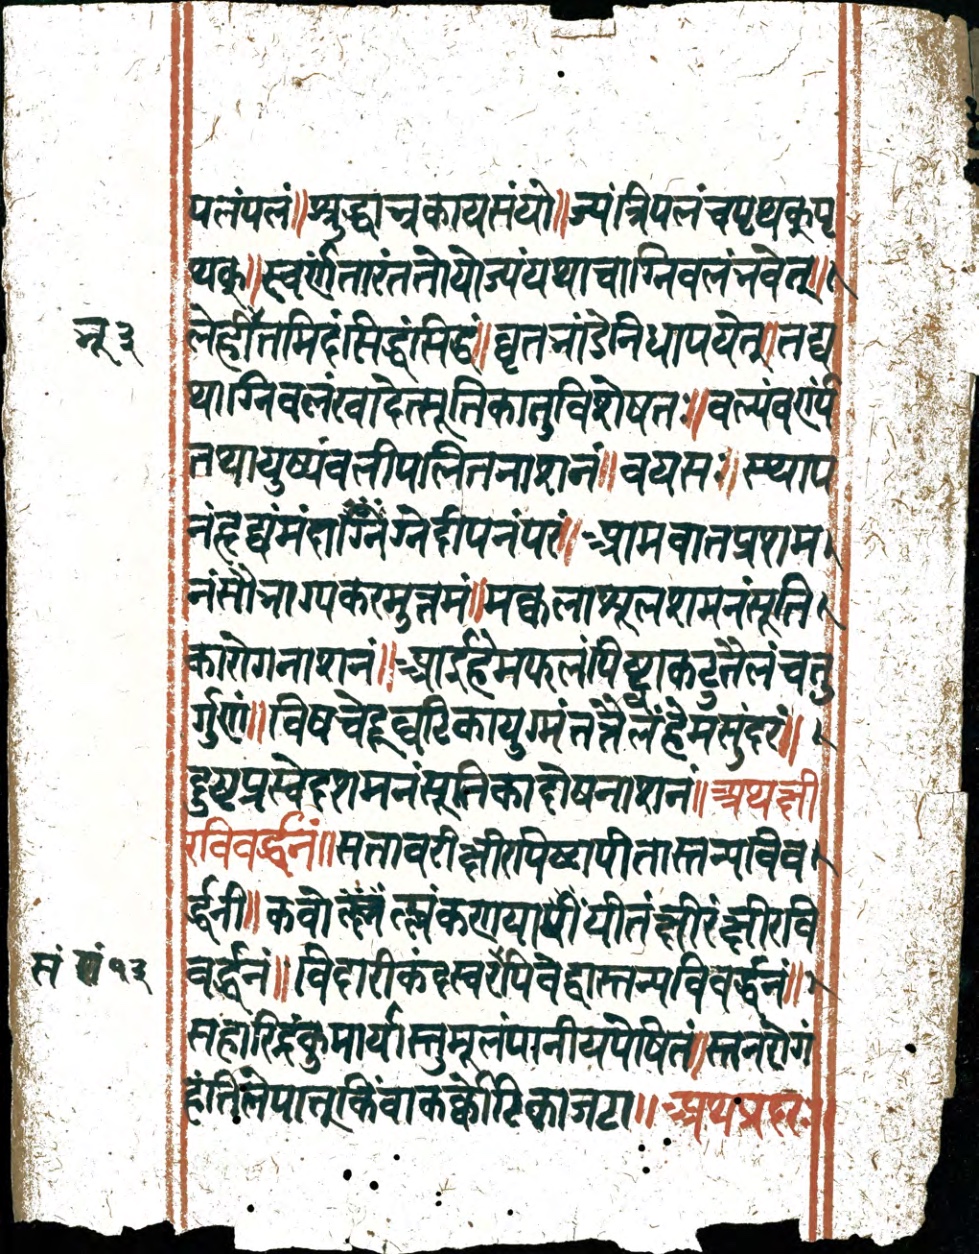 पलंपलं॥श्रुद्धाच्रकायसंयो॥ज्यंत्रिपलंचपृथक्पृ
थक्॥स्वर्णंतारंततोयोज्यंयथाचाग्निवलंनवेत्॥
नू ३
लेहोत्तमिदंसिद्धंसिद्धं॥घृतनांडेनिधापयेत्॥तद्य
थाग्निवलंखादेत्सूतिकातुविशेषतः॥वल्यंवर्ण्यं
तथायुष्यंवलीपलितनाशनं॥वयसः॥स्थाप
नंहृद्यंमंदाग्नेदीपनंपरं॥आमवातप्रशम
नंसौनाग्यकरमुत्तमं॥मक्कलाश्रूलशमनंसूति
कारोगनाशनं॥आर्द्रहेमफलंपिष्ट्वाकटुतैलंचतु
र्गुणं॥विषचेद्घटिकायुग्मंतत्तैलंहेमसुंदरं॥
दुष्टप्रस्वेदशमनंसूतिकादोषनाशनं॥अथक्षी
रविवर्द्धनं॥सतावरीक्षीरपिष्टापीतास्तन्यविव
र्द्धनी॥कवो करणयापीतंक्षीरंक्षीरवि
सं १३
वर्द्धनं॥विदारीकंदस्वरंपिवेद्वास्तन्यविवर्द्धनं॥
सहारिद्रंकुमार्यास्तुमूलंपानीयपेषितं॥स्तनरोगं
हंतिलेपात्तूकिंवाकर्कोटिकाजटा॥अथप्रदरः